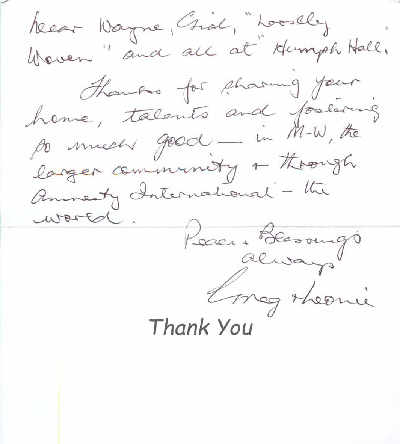 Dear Wayne, Gial, "Loosely
Woven" and all at "Humph Hall.
Thanks for sharing your
home, talents and fostering
so much good — in M-W, the
larger community + through
Amnesty International — the
world.
Peace + Blessings
always
Meg +
Thank You